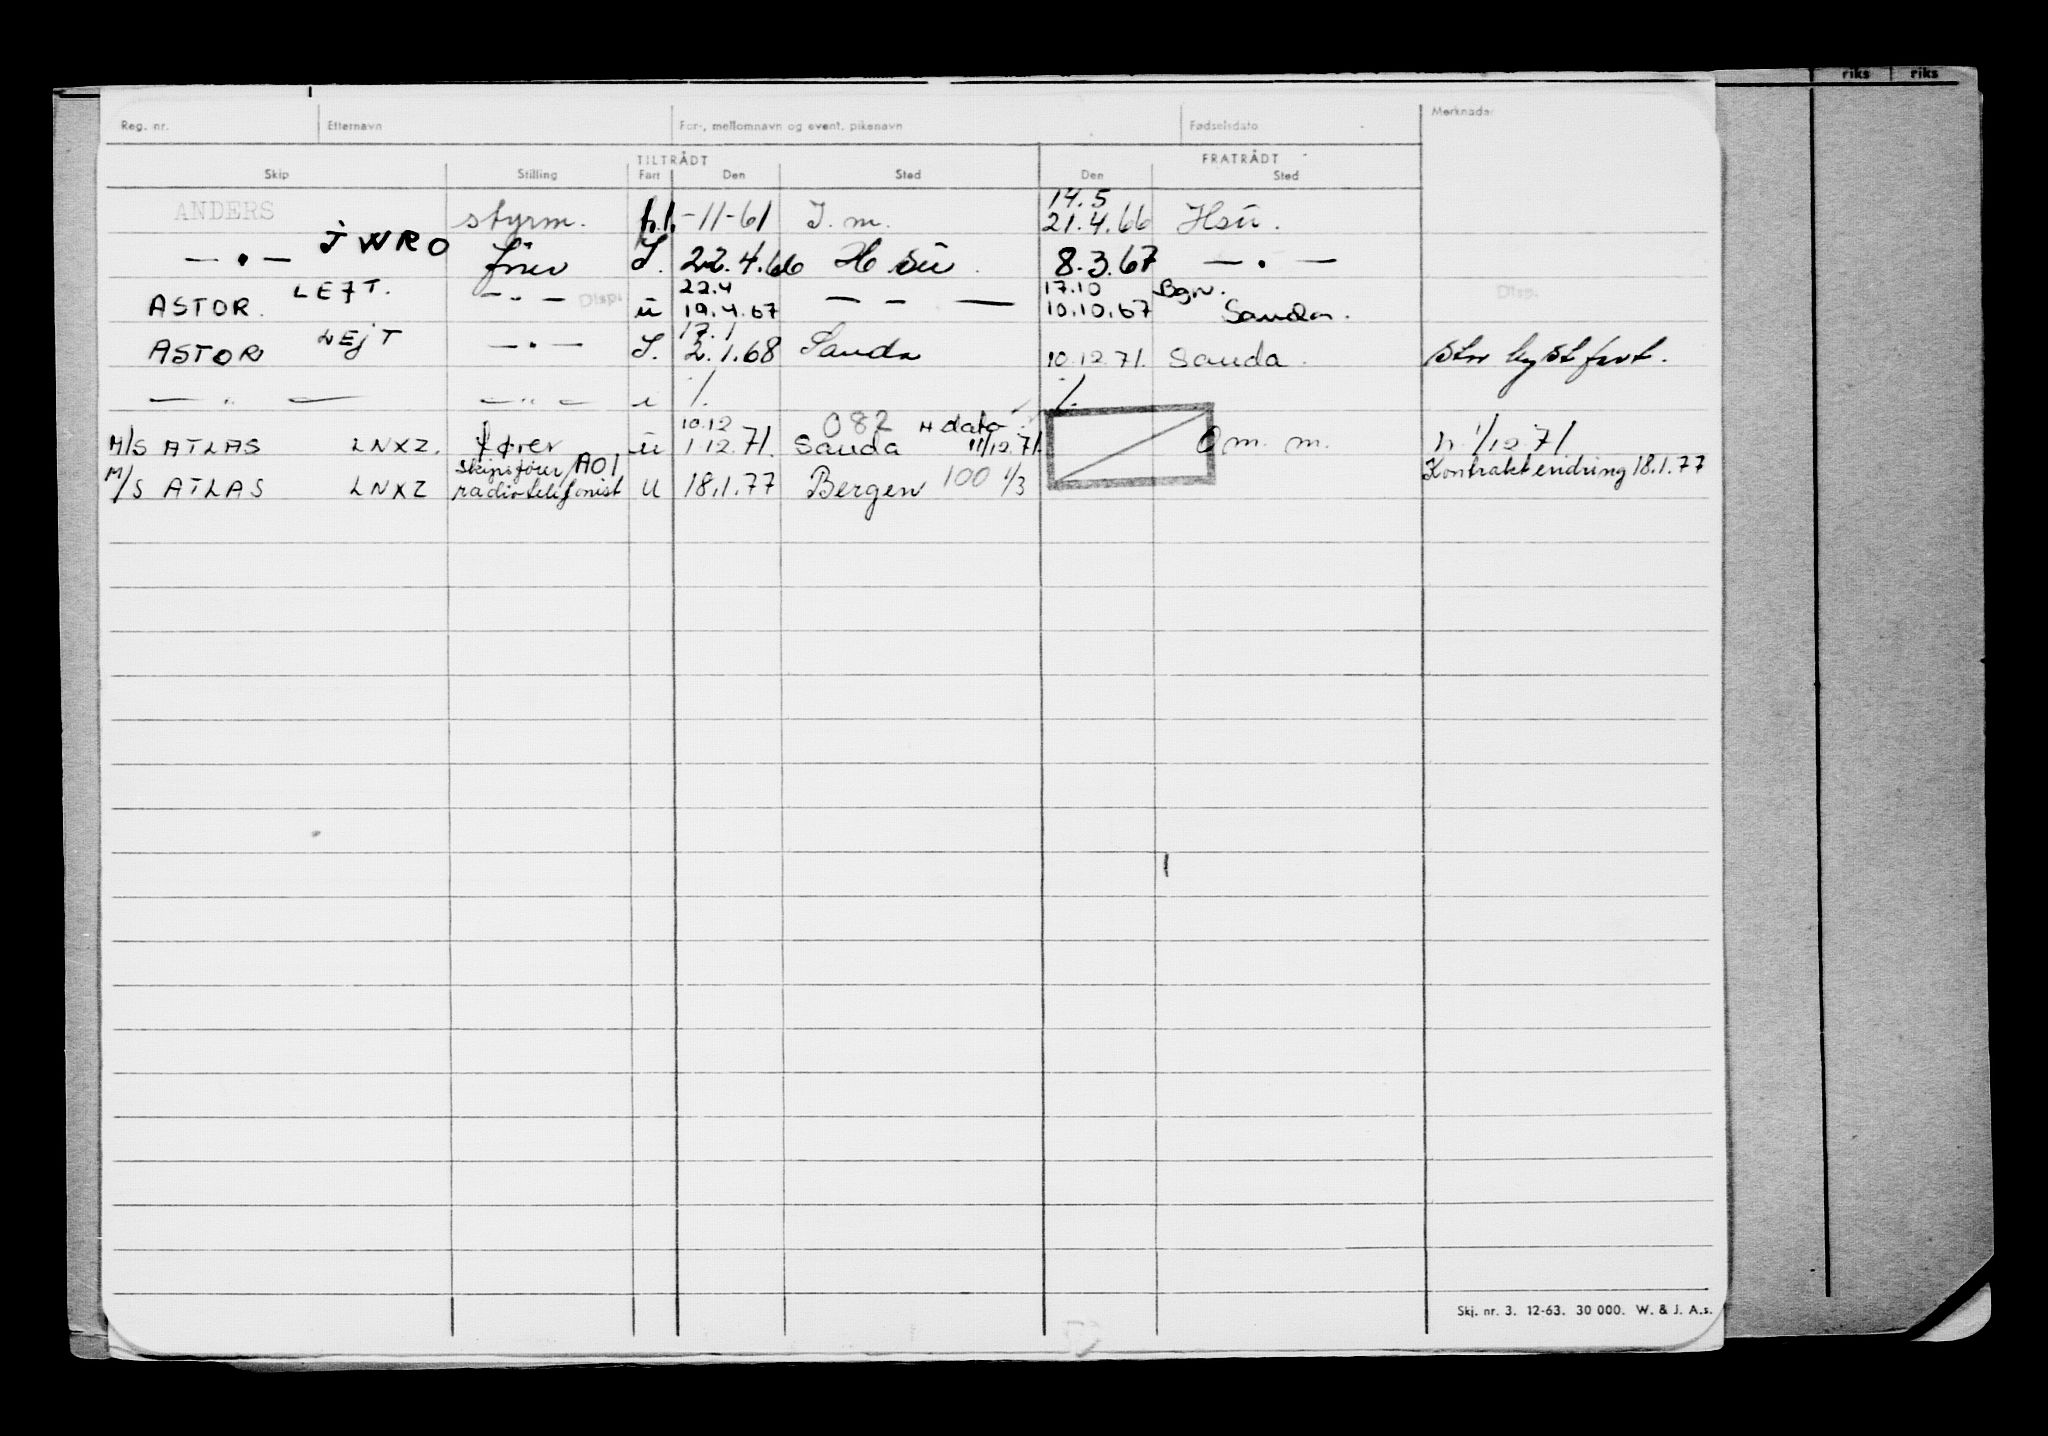 riks riks
Reg. nr. Etternavn For-, mellomnavn og event. pikenavn Fødselsdato Merknader
TILTRÅDT FRATRÅDT
Skip Stilling Fart Den Sted Den Sted
14.5
ANDERS styrm. -11-61 I. m. 21.4.66 Hsu.
— • — JWRO fører I. 22.4.66 H su. 8.3.67 — • —
22.4 17.10 Bgn.
ASTOR. LEJT. — • — Disp. u 19.4.67 — — — 10.10.67 Sauda. Disp.
17.1
ASTOR LEJT — • — I. 2.1.68 Sauda 10.12.71. Sauda. Stor kystfart.
— " — — " — u ./. ./.
10.12 082 H dato
M/S ATLAS LNXZ. fører u 1.12.71. Sauda 11/12.71. Om. m. n. 1/12.71.
M/S ATLAS LNXZ skipsfører/A01 radiotelefonist U 18.1.77 Bergen 100 1/3 Kontraktendring 18.1.77
Skj. nr. 3. 12-63. 30 000. W. & J. A.s.